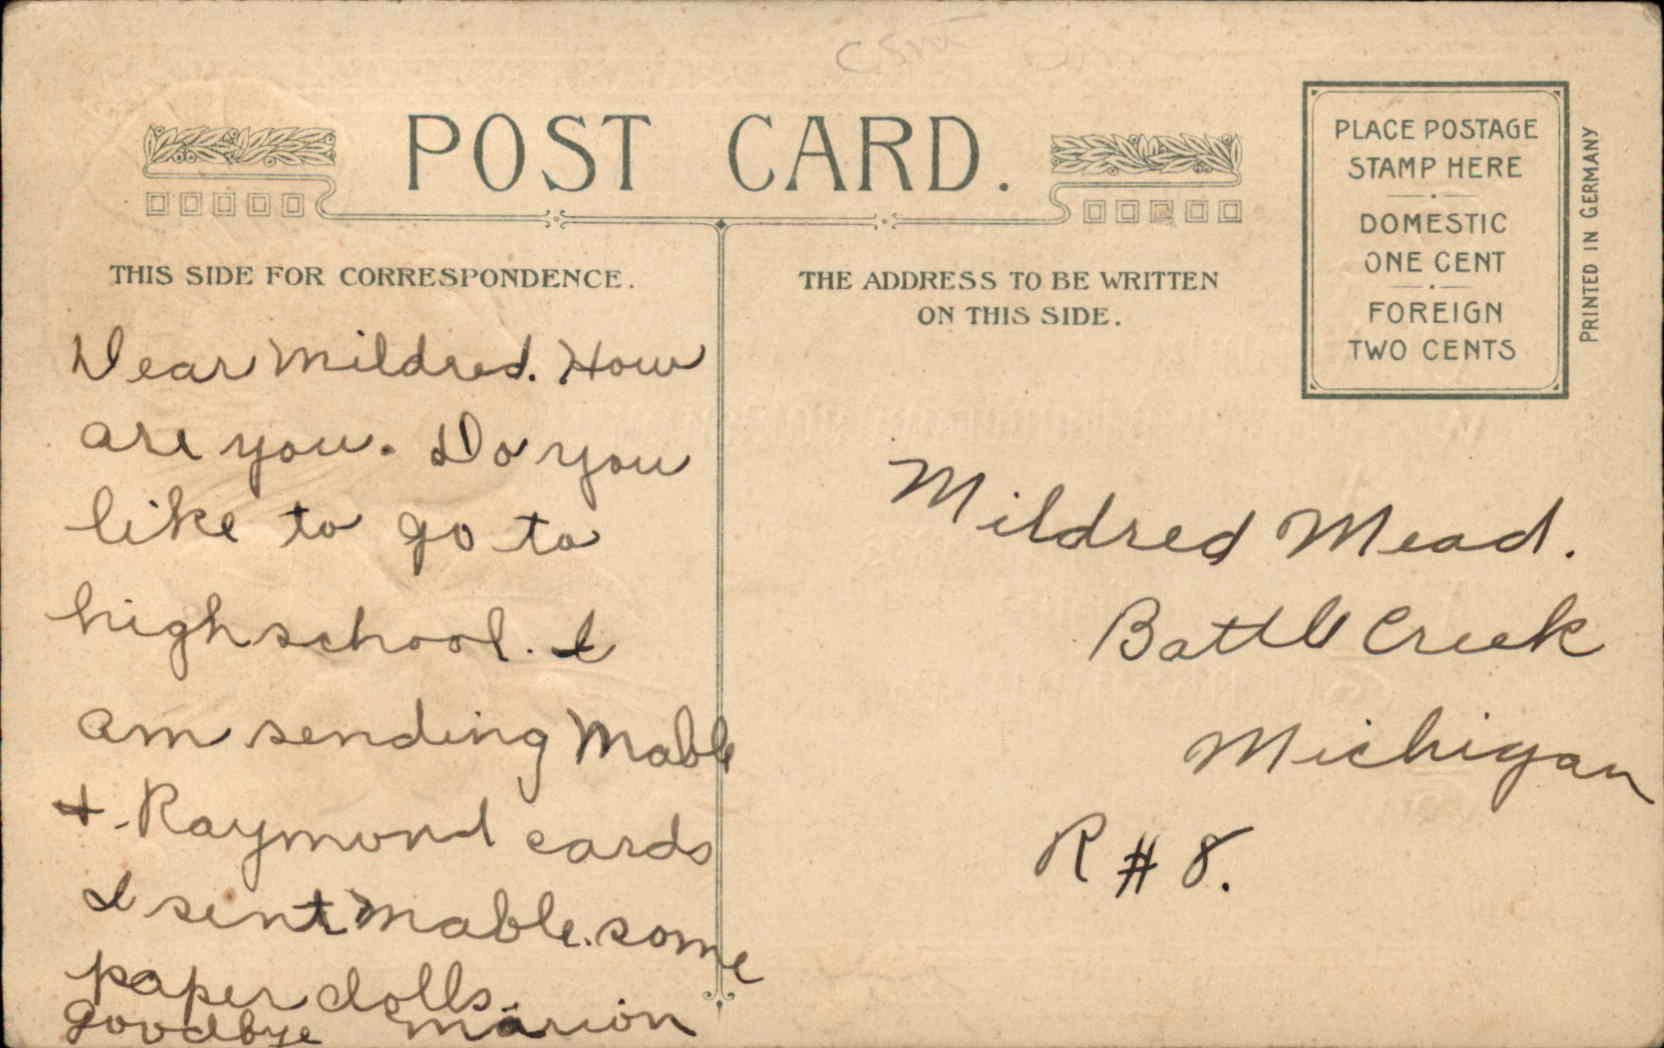 POST CARD.
THIS SIDE FOR CORRESPONDENCE.
Dear Mildred. How
are you. Do you
like to go to
high school. I
am sending Mable
+ Raymond cards
I sent Mable some
paper dolls.
Goodbye Marion
THE ADDRESS TO BE WRITTEN
ON THIS SIDE.
PLACE POSTAGE
STAMP HERE
DOMESTIC
ONE CENT
FOREIGN
TWO CENTS
PRINTED IN GERMANY
Mildred Mead.
Battle Creek
Michigan
R # 8.